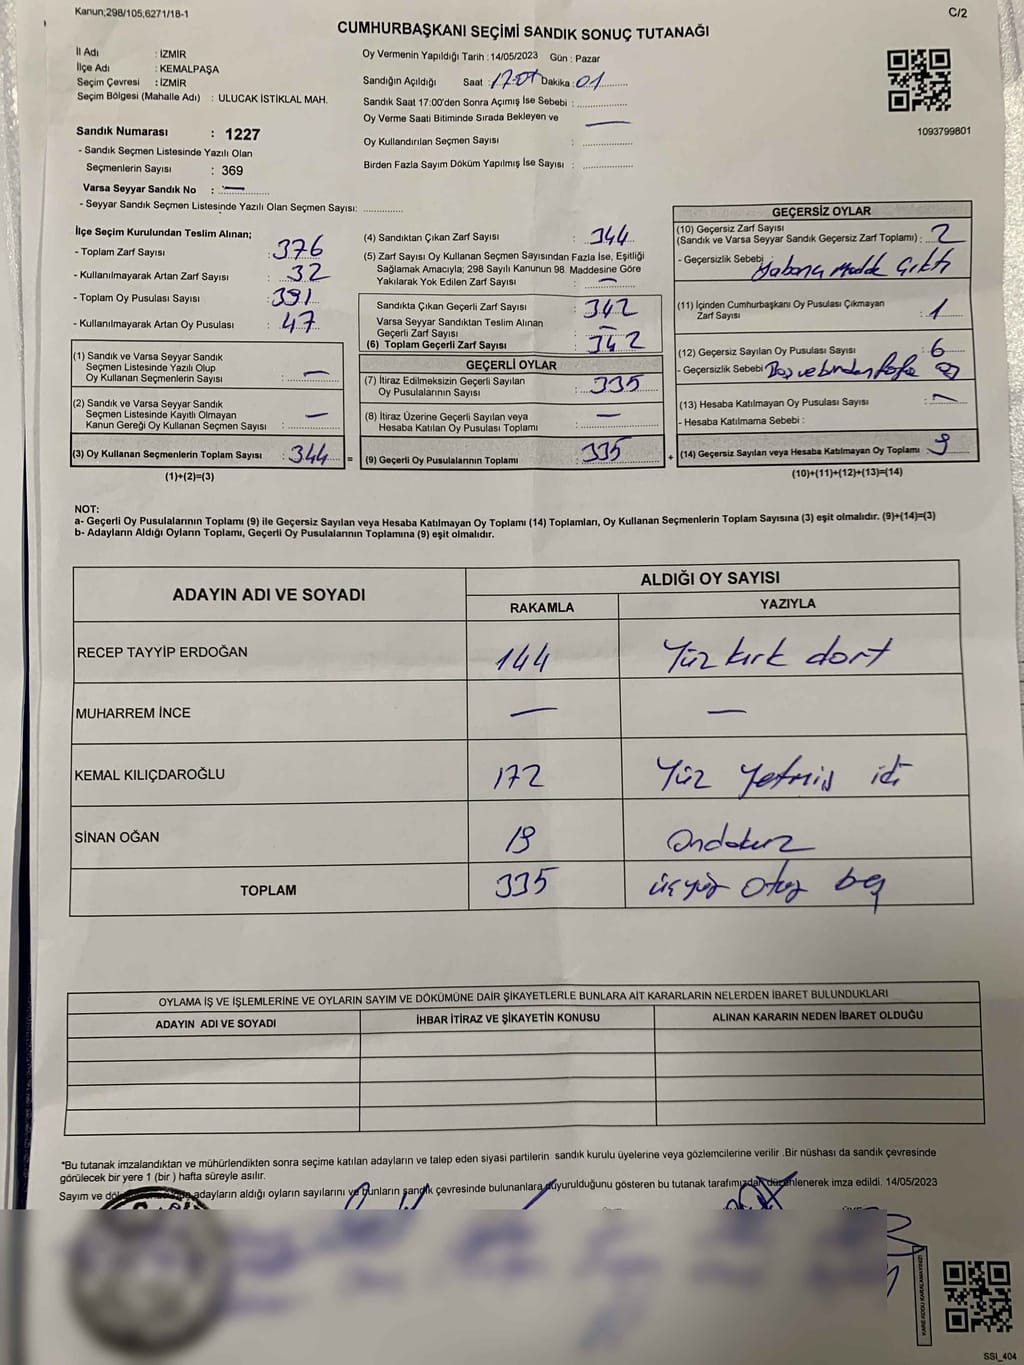 Kanun;298/105,6271/18-1
C/2
CUMHURBAŞKANI SEÇİMİ SANDIK SONUÇ TUTANAĞI
İl Adı : İZMİR
İlçe Adı : KEMALPAŞA
Seçim Çevresi : İZMİR
Seçim Bölgesi (Mahalle Adı) : ULUCAK İSTİKLAL MAH.
Sandık Numarası : 1227
- Sandık Seçmen Listesinde Yazılı Olan
Seçmenlerin Sayısı : 369
Varsa Seyyar Sandık No : —
- Seyyar Sandık Seçmen Listesinde Yazılı Olan Seçmen Sayısı: ..............
Oy Vermenin Yapıldığı Tarih : 14/05/2023 Gün : Pazar
Sandığın Açıldığı Saat : 17.01 Dakika : 01
Sandık Saat 17:00'den Sonra Açımış İse Sebebi : ..................
Oy Verme Saati Bitiminde Sırada Bekleyen ve —
Oy Kullandırılan Seçmen Sayısı : ..................
Birden Fazla Sayım Döküm Yapılmış İse Sayısı : ..................
1093799801
İlçe Seçim Kurulundan Teslim Alınan;
- Toplam Zarf Sayısı : 376
- Kullanılmayarak Artan Zarf Sayısı : 32
- Toplam Oy Pusulası Sayısı : 391
- Kullanılmayarak Artan Oy Pusulası : 47
(1) Sandık ve Varsa Seyyar Sandık
Seçmen Listesinde Yazılı Olup
Oy Kullanan Seçmenlerin Sayısı : —
(2) Sandık ve Varsa Seyyar Sandık
Seçmen Listesinde Kayıtlı Olmayan
Kanun Gereği Oy Kullanan Seçmen Sayısı : —
(3) Oy Kullanan Seçmenlerin Toplam Sayısı : 344 =
(1)+(2)=(3)
(4) Sandıktan Çıkan Zarf Sayısı : 344
(5) Zarf Sayısı Oy Kullanan Seçmen Sayısından Fazla İse, Eşitliği
Sağlamak Amacıyla; 298 Sayılı Kanunun 98. Maddesine Göre
Yakılarak Yok Edilen Zarf Sayısı : —
Sandıkta Çıkan Geçerli Zarf Sayısı : 342
Varsa Seyyar Sandıktan Teslim Alınan
Geçerli Zarf Sayısı : —
(6) Toplam Geçerli Zarf Sayısı : 342
GEÇERLİ OYLAR
(7) İtiraz Edilmeksizin Geçerli Sayılan
Oy Pusulalarının Sayısı : 335
(8) İtiraz Üzerine Geçerli Sayılan veya
Hesaba Katılan Oy Pusulası Toplamı : —
(9) Geçerli Oy Pusulalarının Toplamı : 335 +
GEÇERSİZ OYLAR
(10) Geçersiz Zarf Sayısı
(Sandık ve Varsa Seyyar Sandık Geçersiz Zarf Toplamı) : 2
- Geçersizlik Sebebi Yabancı Madde Çıktı
(11) İçinden Cumhurbaşkanı Oy Pusulası Çıkmayan
Zarf Sayısı : 1
(12) Geçersiz Sayılan Oy Pusulası Sayısı : 6
- Geçersizlik Sebebi Boş ve birden fazla oy
(13) Hesaba Katılmayan Oy Pusulası Sayısı : —
- Hesaba Katılmama Sebebi :
(14) Geçersiz Sayılan veya Hesaba Katılmayan Oy Toplamı : 9
(10)+(11)+(12)+(13)=(14)
NOT:
a- Geçerli Oy Pusulalarının Toplamı (9) ile Geçersiz Sayılan veya Hesaba Katılmayan Oy Toplamı (14) Toplamları, Oy Kullanan Seçmenlerin Toplam Sayısına (3) eşit olmalıdır. (9)+(14)=(3)
b- Adayların Aldığı Oyların Toplamı, Geçerli Oy Pusulalarının Toplamına (9) eşit olmalıdır.
ADAYIN ADI VE SOYADI
ALDIĞI OY SAYISI
RAKAMLA YAZIYLA
RECEP TAYYİP ERDOĞAN 144 Yüz kırk dort
MUHARREM İNCE — —
KEMAL KILIÇDAROĞLU 172 Yüz Yetmiş iki
SİNAN OĞAN 19 Ondokuz
TOPLAM 335 üçyüz otuz beş
OYLAMA İŞ VE İŞLEMLERİNE VE OYLARIN SAYIM VE DÖKÜMÜNE DAİR ŞİKAYETLERLE BUNLARA AİT KARARLARIN NELERDEN İBARET BULUNDUKLARI
ADAYIN ADI VE SOYADI İHBAR İTİRAZ VE ŞİKAYETİN KONUSU ALINAN KARARIN NEDEN İBARET OLDUĞU
*Bu tutanak imzalandıktan ve mühürlendikten sonra seçime katılan adayların ve talep eden siyasi partilerin sandık kurulu üyelerine veya gözlemcilerine verilir .Bir nüshası da sandık çevresinde
görülecek bir yere 1 (bir ) hafta süreyle asılır.
Sayım ve adayların aldığı oyların sayılarını ve bunların sandık çevresinde bulunanlara duyurulduğunu gösteren bu tutanak tarafımızdan düzenlenerek imza edildi. 14/05/2023
KARE KODU KARALAMAYINIZ!
SSİ_404